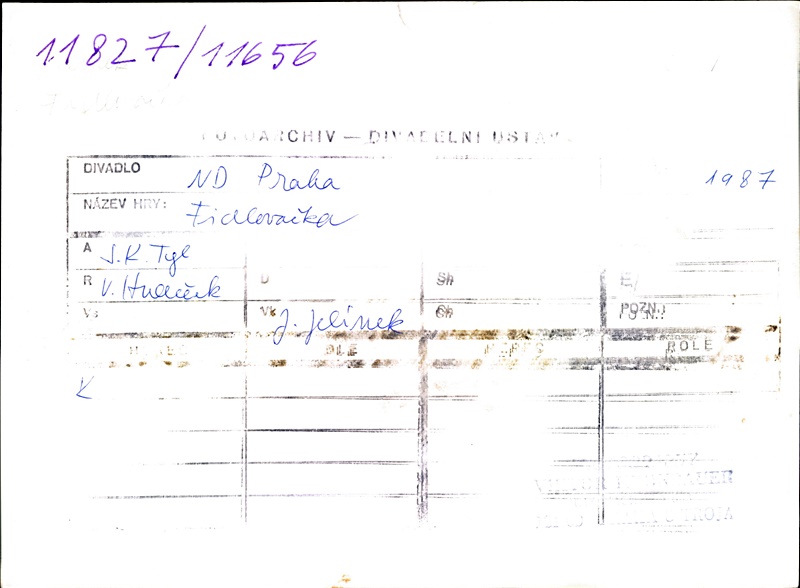 11827/11656
FOTOARCHIV — DIVADELNÍ ÚSTAV
DIVADLO ND Praha
1987
NÁZEV HRY: Fidlovačka
A J.K. Tyl
R V. Hudeček D Sh E
Vs Vk J. Jelínek Ch POZN.:
ROLE ROLE
K